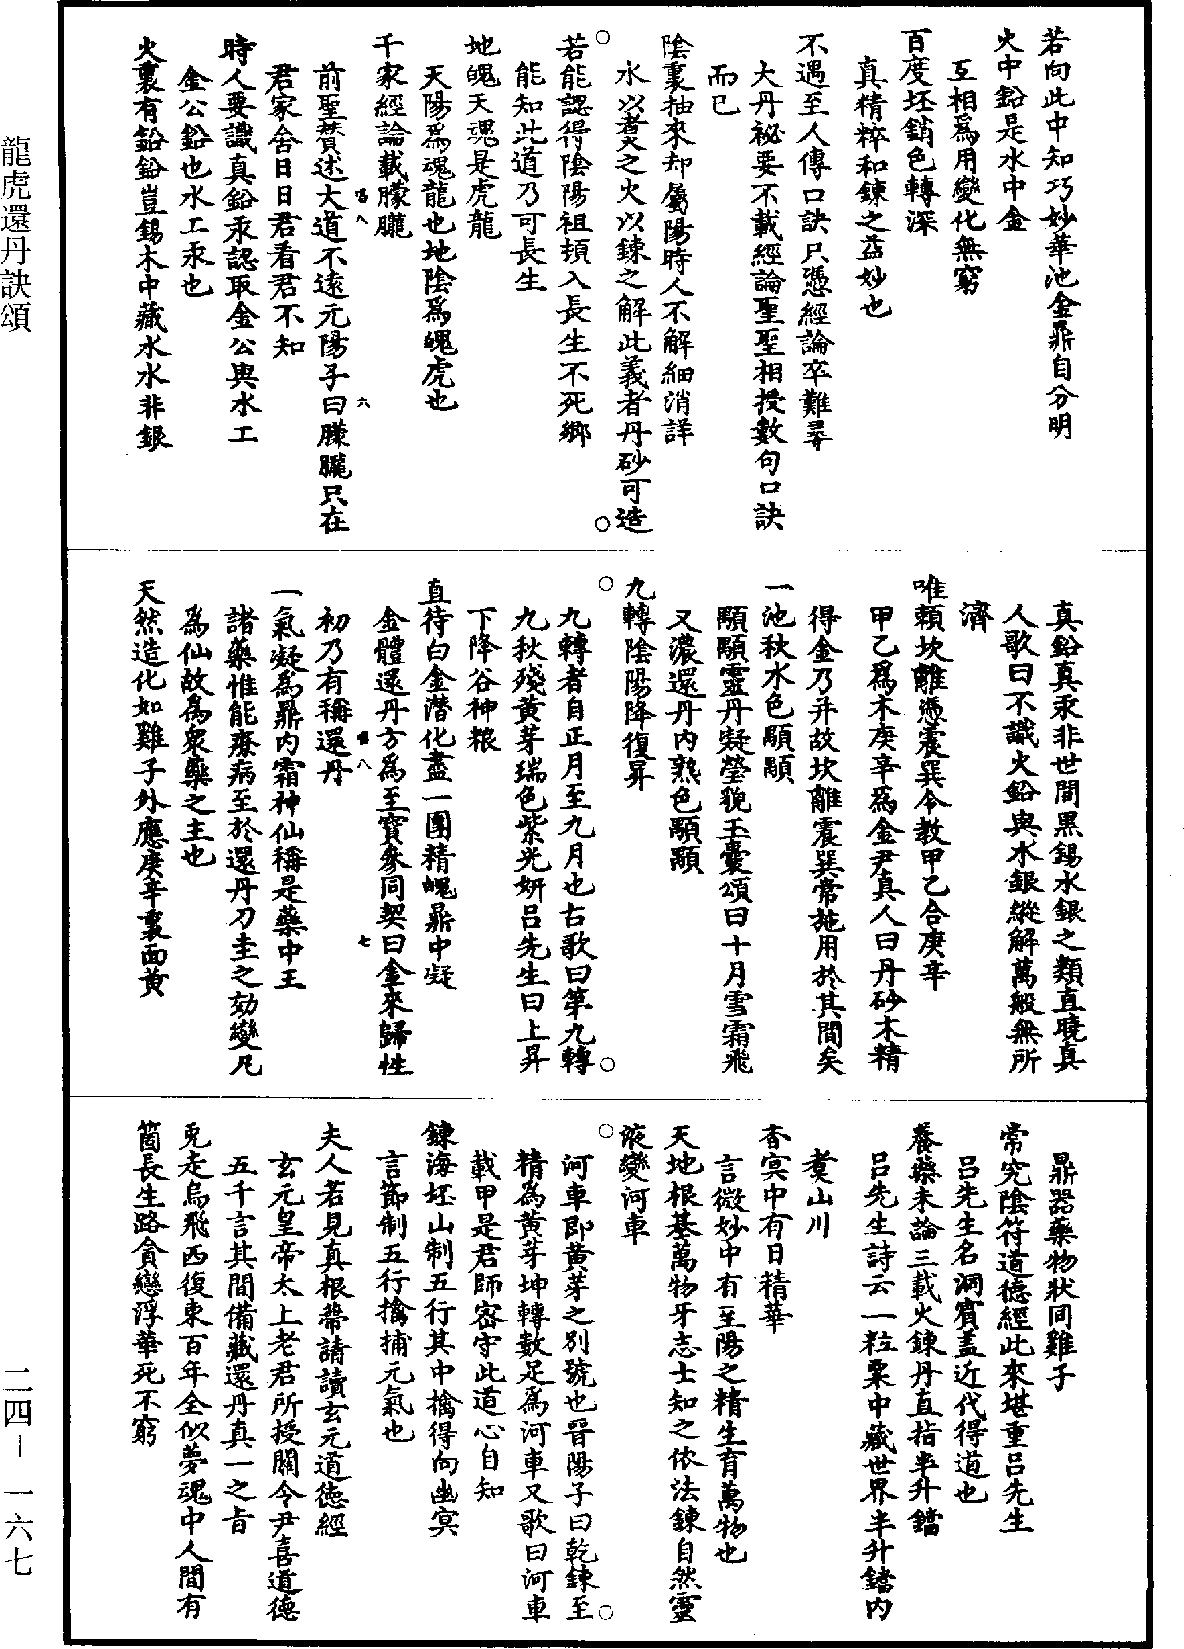 龍虎還丹訣頌
若向此中知巧妙華池金鼎自分明
火中鉛是水中金
互相為用變化無窮
百度坯銷色轉深
真精粹和鍊之益妙也
不遇至人傳口訣只憑經論卒難尋
大丹祕要不載經論聖聖相授數句口訣
而已
陰裏抽來却屬陽時人不解細消詳
水以煑之火以鍊之解此義者丹砂可造
若能認得陰陽祖頓入長生不死鄉
能知此道乃可長生
地魄天魂是虎龍
天陽為魂龍也地陰為魄虎也
千家經論載朦朧
前聖贊述大道不遠元陽子曰朦朧只在
君家舍日日君看君不知
時人要識真鉛汞認取金公與水工
金公鉛也水工汞也
火裏有鉛鉛豈錫木中藏水水非銀
真鉛真汞非世間黑錫水銀之類直曉真
人歌曰不識火鉛與水銀縱解萬般無所
濟
唯賴坎離憑震巽令教甲乙合庚辛
甲乙為木庚辛為金尹真人曰丹砂木精
得金乃并故坎離震巽常施用於其間矣
一池秋水色顒顒
顒顒靈丹凝瑩貌玉壷頌曰十月雪霜飛
又濃還丹内熟色顒顒
九轉陰陽降復昇
九轉者自正月至九月也古歌曰第九轉
九秋殘黄芽瑞色紫光妍吕先生曰上昇
下降谷神粮
直待白金潛化盡一團精魄鼎中凝
金體還丹方為至寳叅同契曰金來歸性
初乃有稱還丹
一氣凝為鼎内霜神仙稱是藥中王
諸藥惟能療病至於還丹刀圭之効變凡
為仙故為衆藥之主也
天然造化如雞子外應庚辛裏面黄
鼎器藥物狀同雞子
常究陰符道德經此來堪重吕先生
吕先生名洞賓盖近代得道也
養藥未論三載火鍊丹直指半升鐺
吕先生詩云一粒粟中藏世界半升鐺内
煑山川
杳冥中有日精華
言微妙中有至陽之精生育萬物也
天地根基萬物牙志士知之依法鍊自然靈
液變河車
河車即黄芽之别號也晉陽子曰乾鍊至
精為黄芽坤轉數足為河車又歌曰河車
載甲是君師密守此道心自知
鍊海坯山制五行其中擒得向幽冥
言節制五行擒捕元氣也
夫人若見真根蔕請讀玄元道德經
玄元皇帝太上老君所授關令尹喜道德
五千言其間備藏還丹真一之旨
兎走烏飛西復東百年全似夢魂中人間有
箇長生路貪戀浮華死不窮
二四－一六七